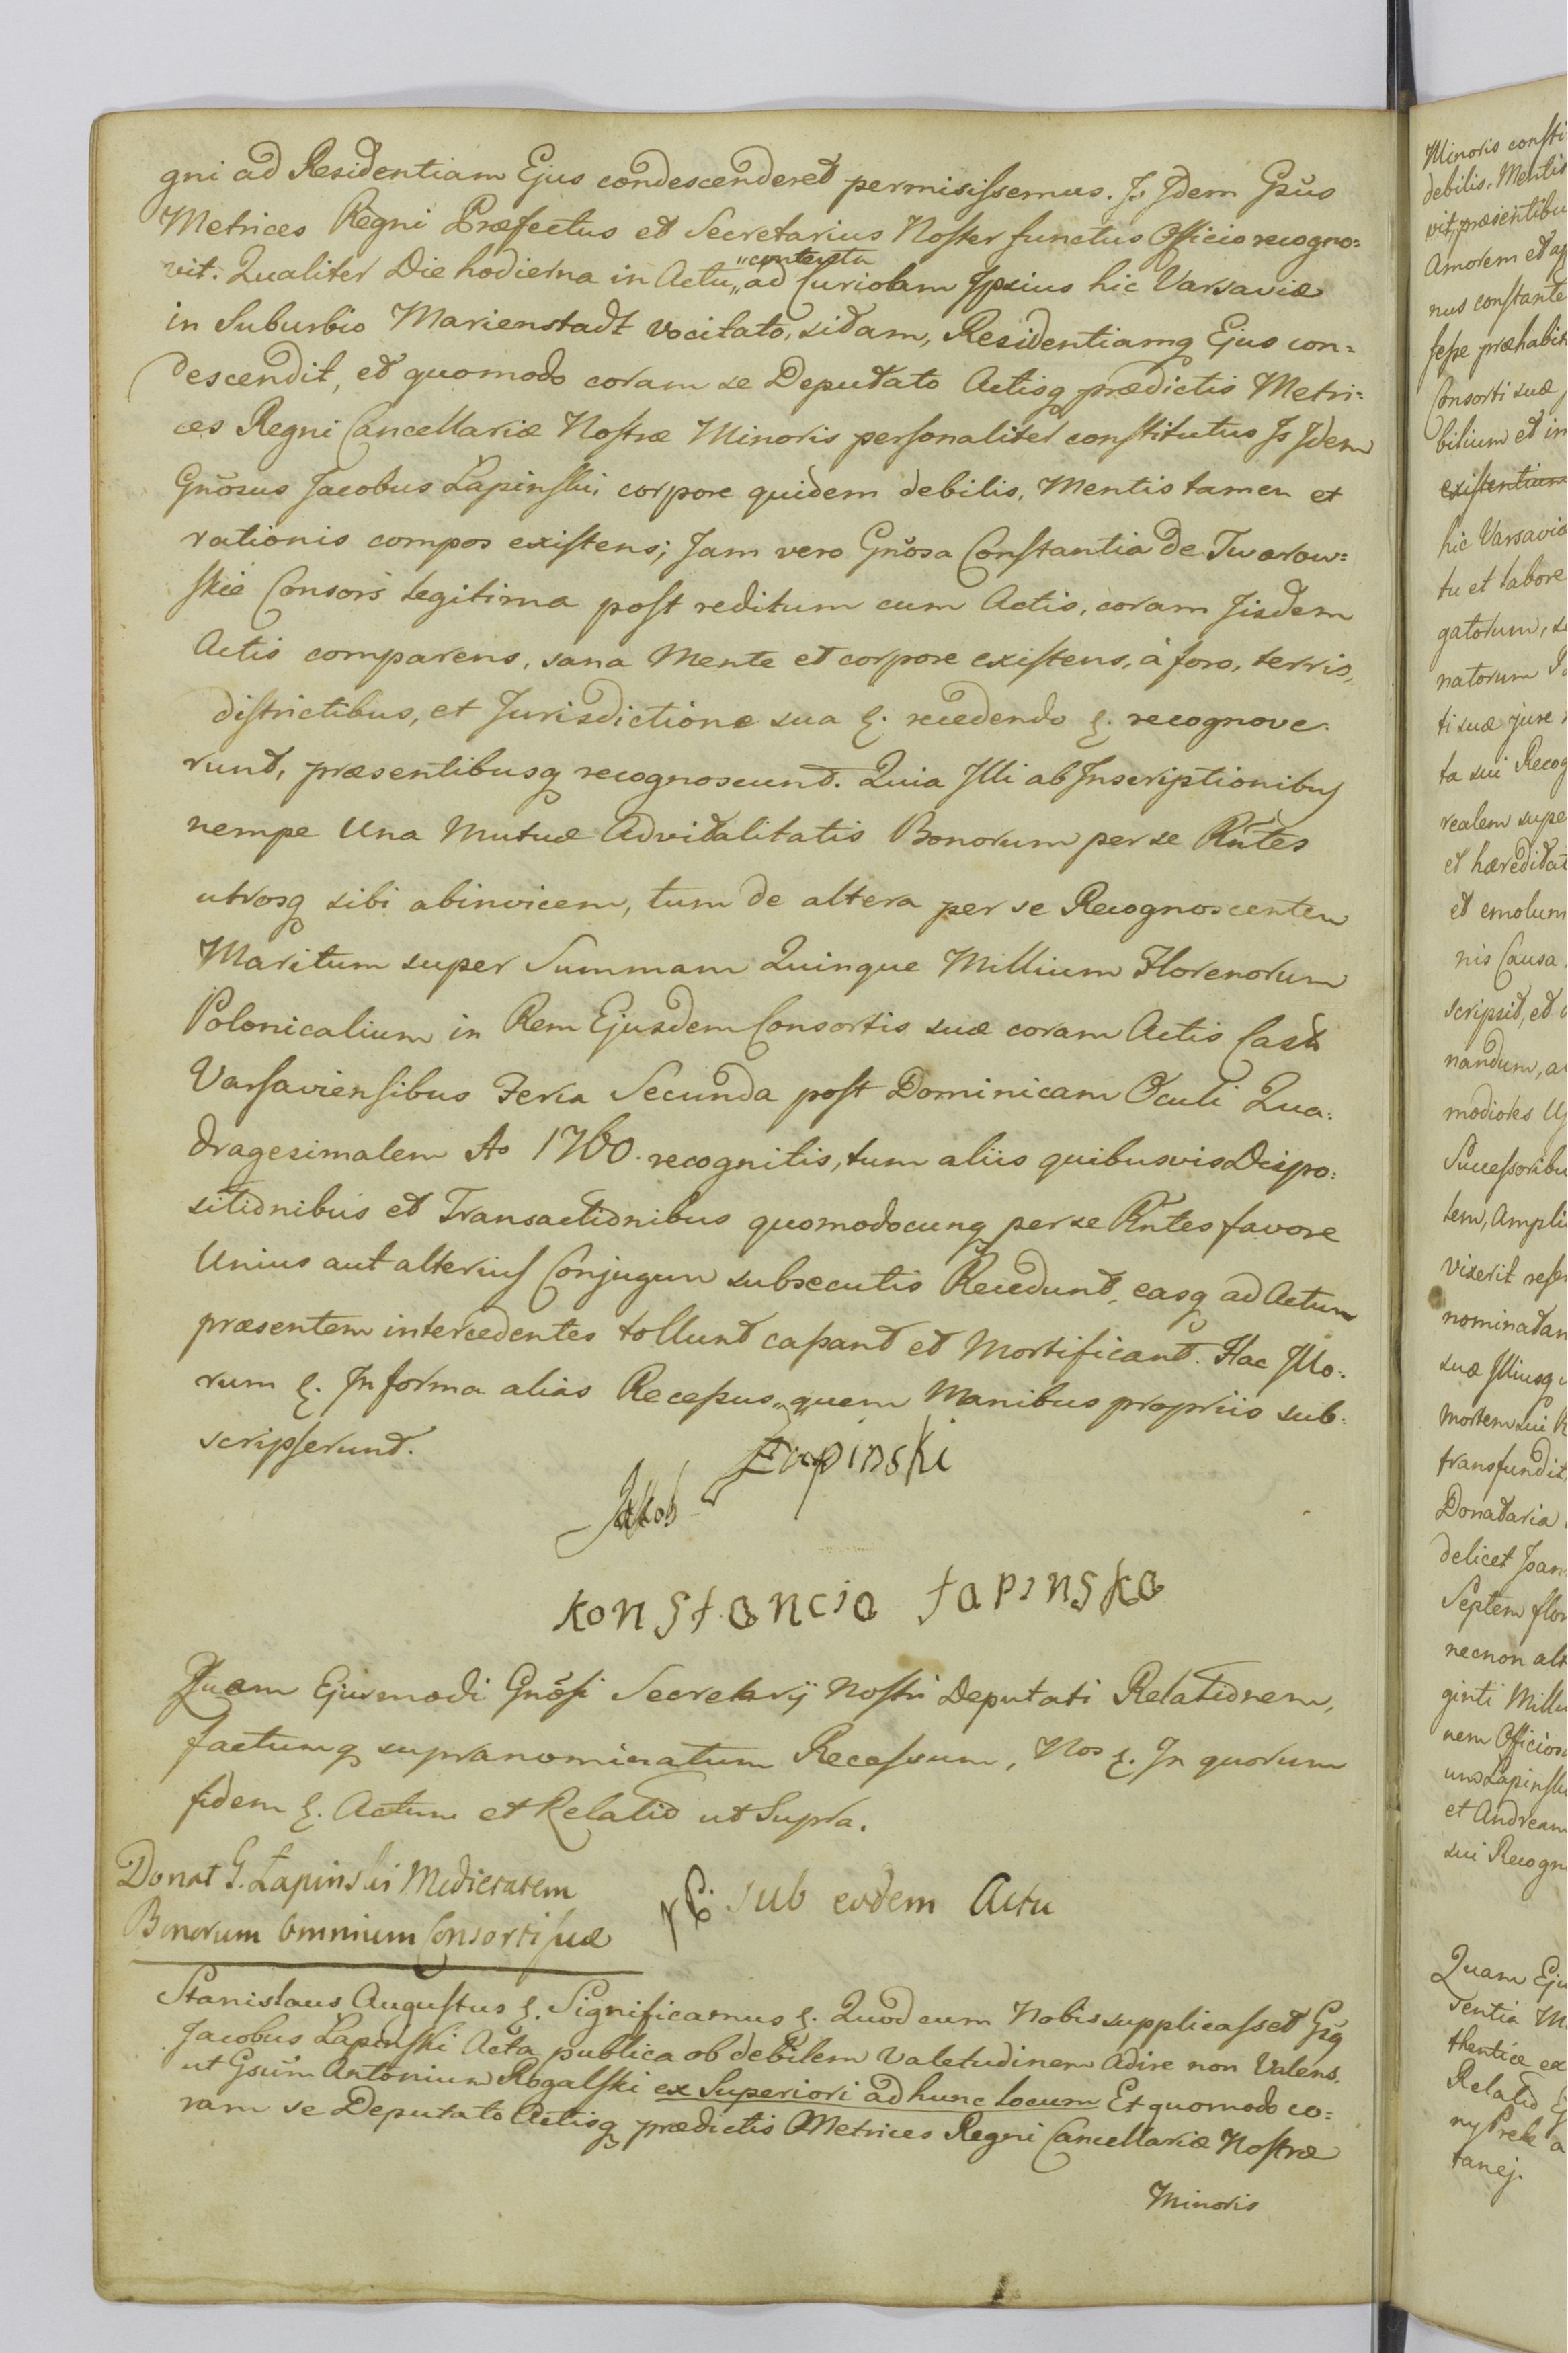 gni ad Residentiam Ejus condescenderet permisissemus. Is Idem Gsūs
Metrices Regni Præfectus et Secretarius Noster functus Officio recogno=
vit. Qualiter Die hodierna in Actu „contenta ad Curiolam Ipsius hic Varsaviæ
in Suburbio Marienstadt vocitato, sitam, Residentiamq Ejus con=
descendit, et quomodo coram se Deputato Actisq prædictis Metri=
ces Regni Cancellariæ Nostræ Minoris personaliter constitutus Is Idem
Gnōsus Jacobus Łapinski, corpore quidem debilis, Mentis tamen et
rationis compos existens; Jam vero Gnōsa Constantia de Twarow=
skie Consors legitima post reditum cum Actis, coram Iisdem
Actis comparens, sana Mente et corpore existens, à foro, terris,
districtibus, et Jurisdictione sua &. recedendo &. recognove.
runt, præsentibusq recognoscunt. Quia Illi ab Inscriptionibus
nempe Una Mutuæ Advitalitatis Bonorum per se Rntes
utrosq sibi abinvicem, tum de altera per se Recognoscentem
Maritum super Summam Quinque Millium Florenorum
Polonicalium in Rem Ejusdem Consortis suæ coram Actis Castr
Varsaviensibus Feria Secunda post Dominicam Oculi Qua:
dragesimalem Ao 1760. recognitis, tum aliis quibusvis Dispo:
sitionibus et Transactionibus quomodocunq per se Rntes favore
Unius aut alterius Conjugum subsecutis Recedunt, easq ad Actum
præsentem intercedentes tollunt cassant et Mortificant. Hac Illo:
rum &. In forma alias Recessus, quem Manibus propriis sub:
scripserunt.
Jakob Łapinski
Konstancia Łapinska
Quam Ejusmodi Gnōsi Secretarij Nostri Deputati Relationem,
factumq supranominatum Recessum, Nos &. In quorum
fidem &. Actum et Relatio ut Supra.
Donat G. Łapinski Medietatem
Bonorum Omnium Consorti suæ
sub eodem Actu
Stanislaus Augustus &. Significamus &. Quod cum Nobis supplicasset Gsq
Jacobus Łapinski Acta publica ob debilem Valetudinem Adire non Valens,
ut Gsūm Antonium Rogalski ex Superiori ad hunc locum Et quomodo co=
ram se Deputato Actisq prædictis Metrices Regni Cancellariæ Nostræ
Minoris
Minoris consti
debilis, Mentis
vit, præsentibu
Amorem et
nus constante
sesse præhabit
Consorti suæ
bilium et in
existentium
hic Varsaviæ
tu et labore
gatorum, s
natorum
ti suæ jure
ta sui Recog
realem supe
et hæreditat
et emolum
nis Causa
scripsit, et
nandum, a
modiores
Successoribu
tem, Ampli
vixerit rese
nominatan
suæ Illiusq
mortem sui R
transfundit
Donataria
delicet Joan
Septem flor
necnon alt
ginti Millu
nem Officios
uns Łapinski
et Andream
sui Recogn
Quam Eju
sentia M
thentice ex
Relatio
tanej.